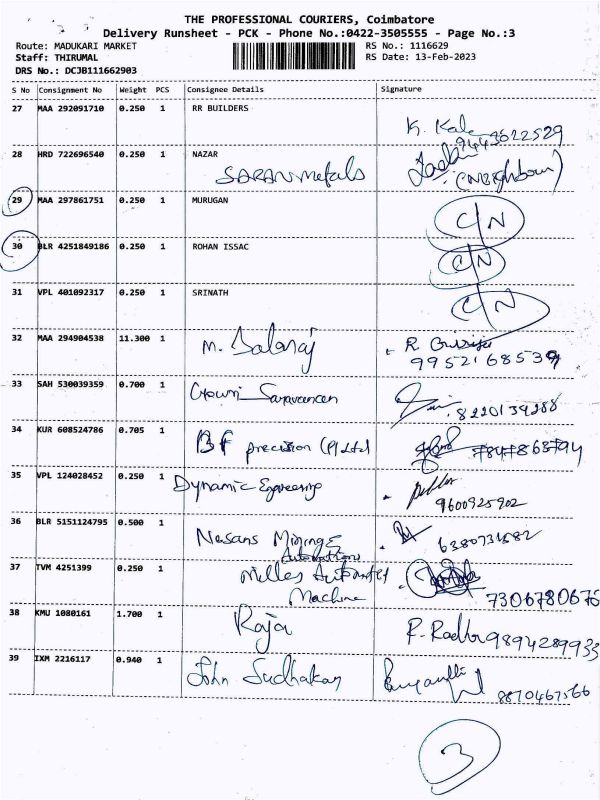 THE PROFESSIONAL COURIERS, Coimbatore
Delivery Runsheet - PCK - Phone No.:0422-3505555 - Page No.:3
Route: MADUKARI MARKET RS No.: 1116629
Staff: THIRUMAL RS Date: 13-Feb-2023
DRS No.: DCJB111662903
S No Consignment No Weight PCS Consignee Details Signature
27 MAA 292091710 0.250 1 RR BUILDERS
K. Kala 9443622529
28 HRD 722696540 0.250 1 NAZAR
SARAN Metals (Neighbour)
29 MAA 297861751 0.250 1 MURUGAN C/N
30 BLR 4251849186 0.250 1 ROHAN ISSAC C/N
31 VPL 401092317 0.250 1 SRINATH C/N
32 MAA 294904538 11.300 1 M. Balaraj R. Girija
9952168539
33 SAH 530039359 0.700 1 Gowri Saravanan
8220139288
34 KUR 608524786 0.705 1 BF precision (P) Ltd
35 VPL 124028452 0.250 1 Dynamic Engineering
9600925902
36 BLR 5151124795 0.500 1 Nesans Mining &
Automation 6380731582
37 TVM 4251399 0.250 1 Milles
Machine 7306780676
38 KMU 1080161 1.700 1 Raja R. Radha 9894289933
39 IXM 2216117 0.940 1 John Sudhakar
8870467566
3